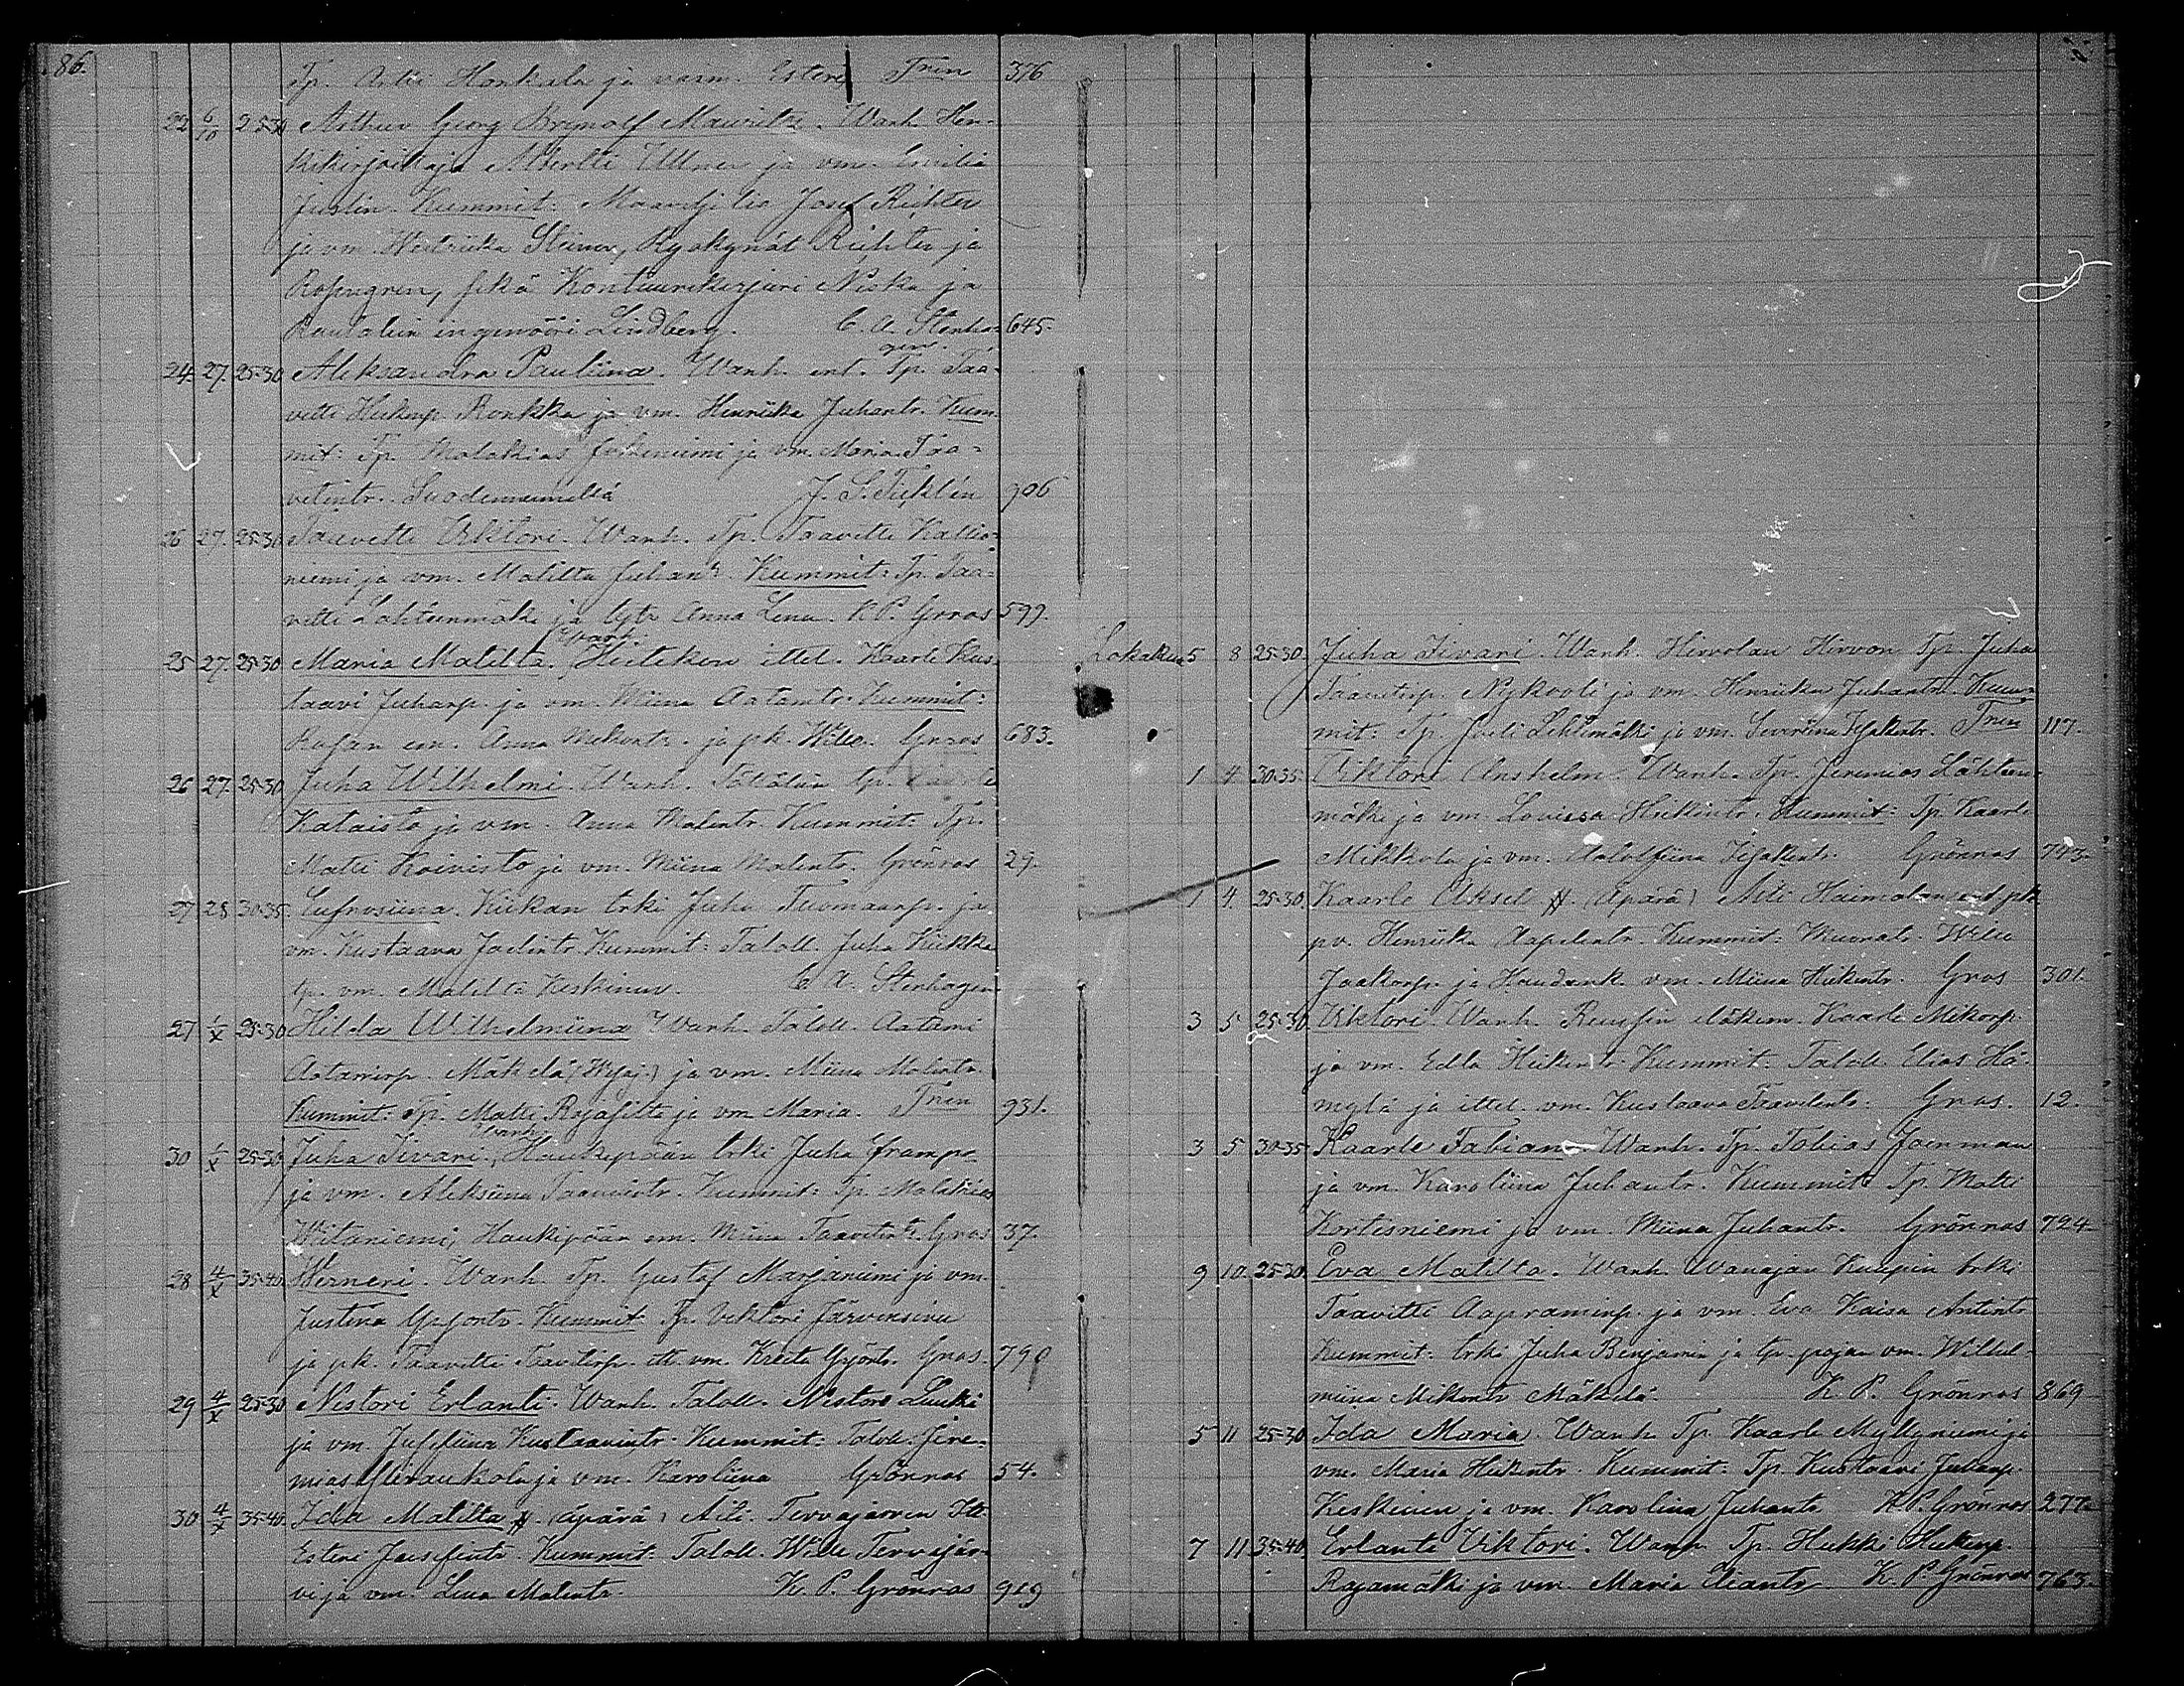 86.
Tp. Antti Honkala ja vaim. Esteri Tren 376
22 6/10 25-30 Arthur Georg Brynolf Mauritz. Wanh. Hen-
kikirjoittaja Albertti Ullner ja vm. Emilia
Juslin. Kummit: Maanvilj. Josef Richter
ja vm. Ryökynät Richter ja
sekä Konttuurikirjuri Niska ja
ingenööri Lindberg. C. A. Stenha- 645.
gen.
24. 27. 25-30 Aleksandra Pauliina. Wanh. ent. Tp. Taa-
vetti Heikinp. Ronkka ja vm. Henriika Juhantr. Kum-
mit: Tp. Malakias ja vm. Maria Taa-
vetintr. Suodenniemeltä J. S. Ticklén 906
26 27. 25-30 Taavetti Viktori. Wanh. Tp. Taavetti Kallio-
niemi ja vm. Matilta Juhantr. Kummit: Tp. Taa-
vetti Lähteenmäki ja Anna Lena. K P. Grros 599.
25 27. 25-30 Maria Matilta. Wanh. Heitekon ittel. Kaarle Kus-
taavi Juhanp. ja vm. Miina Aatamtr. Kummit:
Anna Mikontr. ja pk. Wille. Gnros 683.
26 27. 25-30 Juha Wilhelmi. Wanh. tp.
Kataisto ja vm. Anna Matintr. Kummit: Tp.
Matti Koivisto ja vm. Miina Matintr. Grönros 29.
27 28 30-35. Eufrosiina. Kiikan trki Juha Tuomaanp. ja
vm. Kustaava Joelintr. Kummit: Taloll. Juha Kiikka
tp. vm. Matilta Keskinen. C A. Stenhagen
27 1/X 25-30 Hilda Wilhelmiina Wanh. Taloll. Aatami
Aataminp. Mäkelä ja vm. Miina Matintr.
Kummit: Tp. Matti ja vm Maria. Tren 931.
30 1/X 25-30 Juha Iivari. Wanh. Haukipään trki Juha
ja vm. Aleksiina Taavetintr. Kummit: Tp. Malakias
Wiitaniemi, Haukipään em. Miina Taavetintr. Gros 37.
28 4/X 35-40. Werneri. Wanh. Tp. Gustaf Marjaniemi ja vm.
Justina Yrjöntr. Kummit: Tp. Viktori Järvensivu
ja pk. Taavetti Taavetinp. itt. vm. Kreeta Yrjöntr. Gros. 790
29 4/X 25-30 Nestori Erlanti. Wanh. Taloll. Nestori Luuki
ja vm. Josefiina Kustaavintr. Kummit: Taloll. Jere-
mias ja vm. Karoliina Grönros 54.
30 4/X 35-40. Ida Matilta (äpärä) Äiti. Tervajärven Itt.
Esteri Josefintr. Kummit: Taloll. Wille Tervajär-
vi ja vm. Liisa Matintr. K. P. Grönros 919
Lokakuu 5 8 25-30. Juha Iivari. Wanh. Hirvolan Hirvon Tp. Juha
Taavetinp. Nykooli ja vm. Henriika Juhantr. Kum-
mit: Tp. Joeli Lehtimäki ja vm. Severiina Isakintr. Tren 117.
1 4 30-35 Viktori Anshelm. Wanh. Tp. Jeremias Lähteen-
mäki ja vm. Loviisa Heikintr. Kummit: Tp. Kaarle
Mikkola ja vm. Aatolfiina Isakintr. Grönros 773.
1 4. 25-30. Kaarle Aksel (äpärä) Äiti Haimolan
Henriika Aapelintr. Kummit: Muorat. Wille
Jaakonp. ja Haudank. vm. Miina Heikintr. Gros 301.
3 5 25-30. Viktori. Wanh. Reussin mäkim. Kaarle Mikonp.
ja vm. Edla Heikintr. Kummit: Taloll. Elias Hä-
mylä ja ittel. vm. Kustaava Taavetintr. Gros. 12.
3 5 30-35 Kaarle Fabian. Wanh. Tp. Tobias Joenmaa
ja vm. Karoliina Juhantr. Kummit: Tp. Matti
Kortisniemi ja vm. Miina Juhantr. Grönros 724
9 10. 25-30. Eva Matilta. Wanh. Wanajan Kuopin trki
Taavitti Aapraminp. ja vm. Eva Kaisa Antintr.
Kummit: trki Juha Benjamin ja tp. pojan vm. Wilhel-
miina Mikontr Mäkelä K. P. Grönros 869
5 11 25-30 Ida Maria. Wanh. Tp. Kaarle Myllyniemi ja
vm. Maria Heikintr. Kummit: Tp. Kustaavi Juhanp.
Keskinen ja vm. Karoliina Juhantr K. P. Grönros 277.
7 11 35-40. Erlanti Viktori. Wanh. Tp. Heikki Heikinp.
Rajamäki ja vm. Maria Eliantr. K. P Grönros 763.